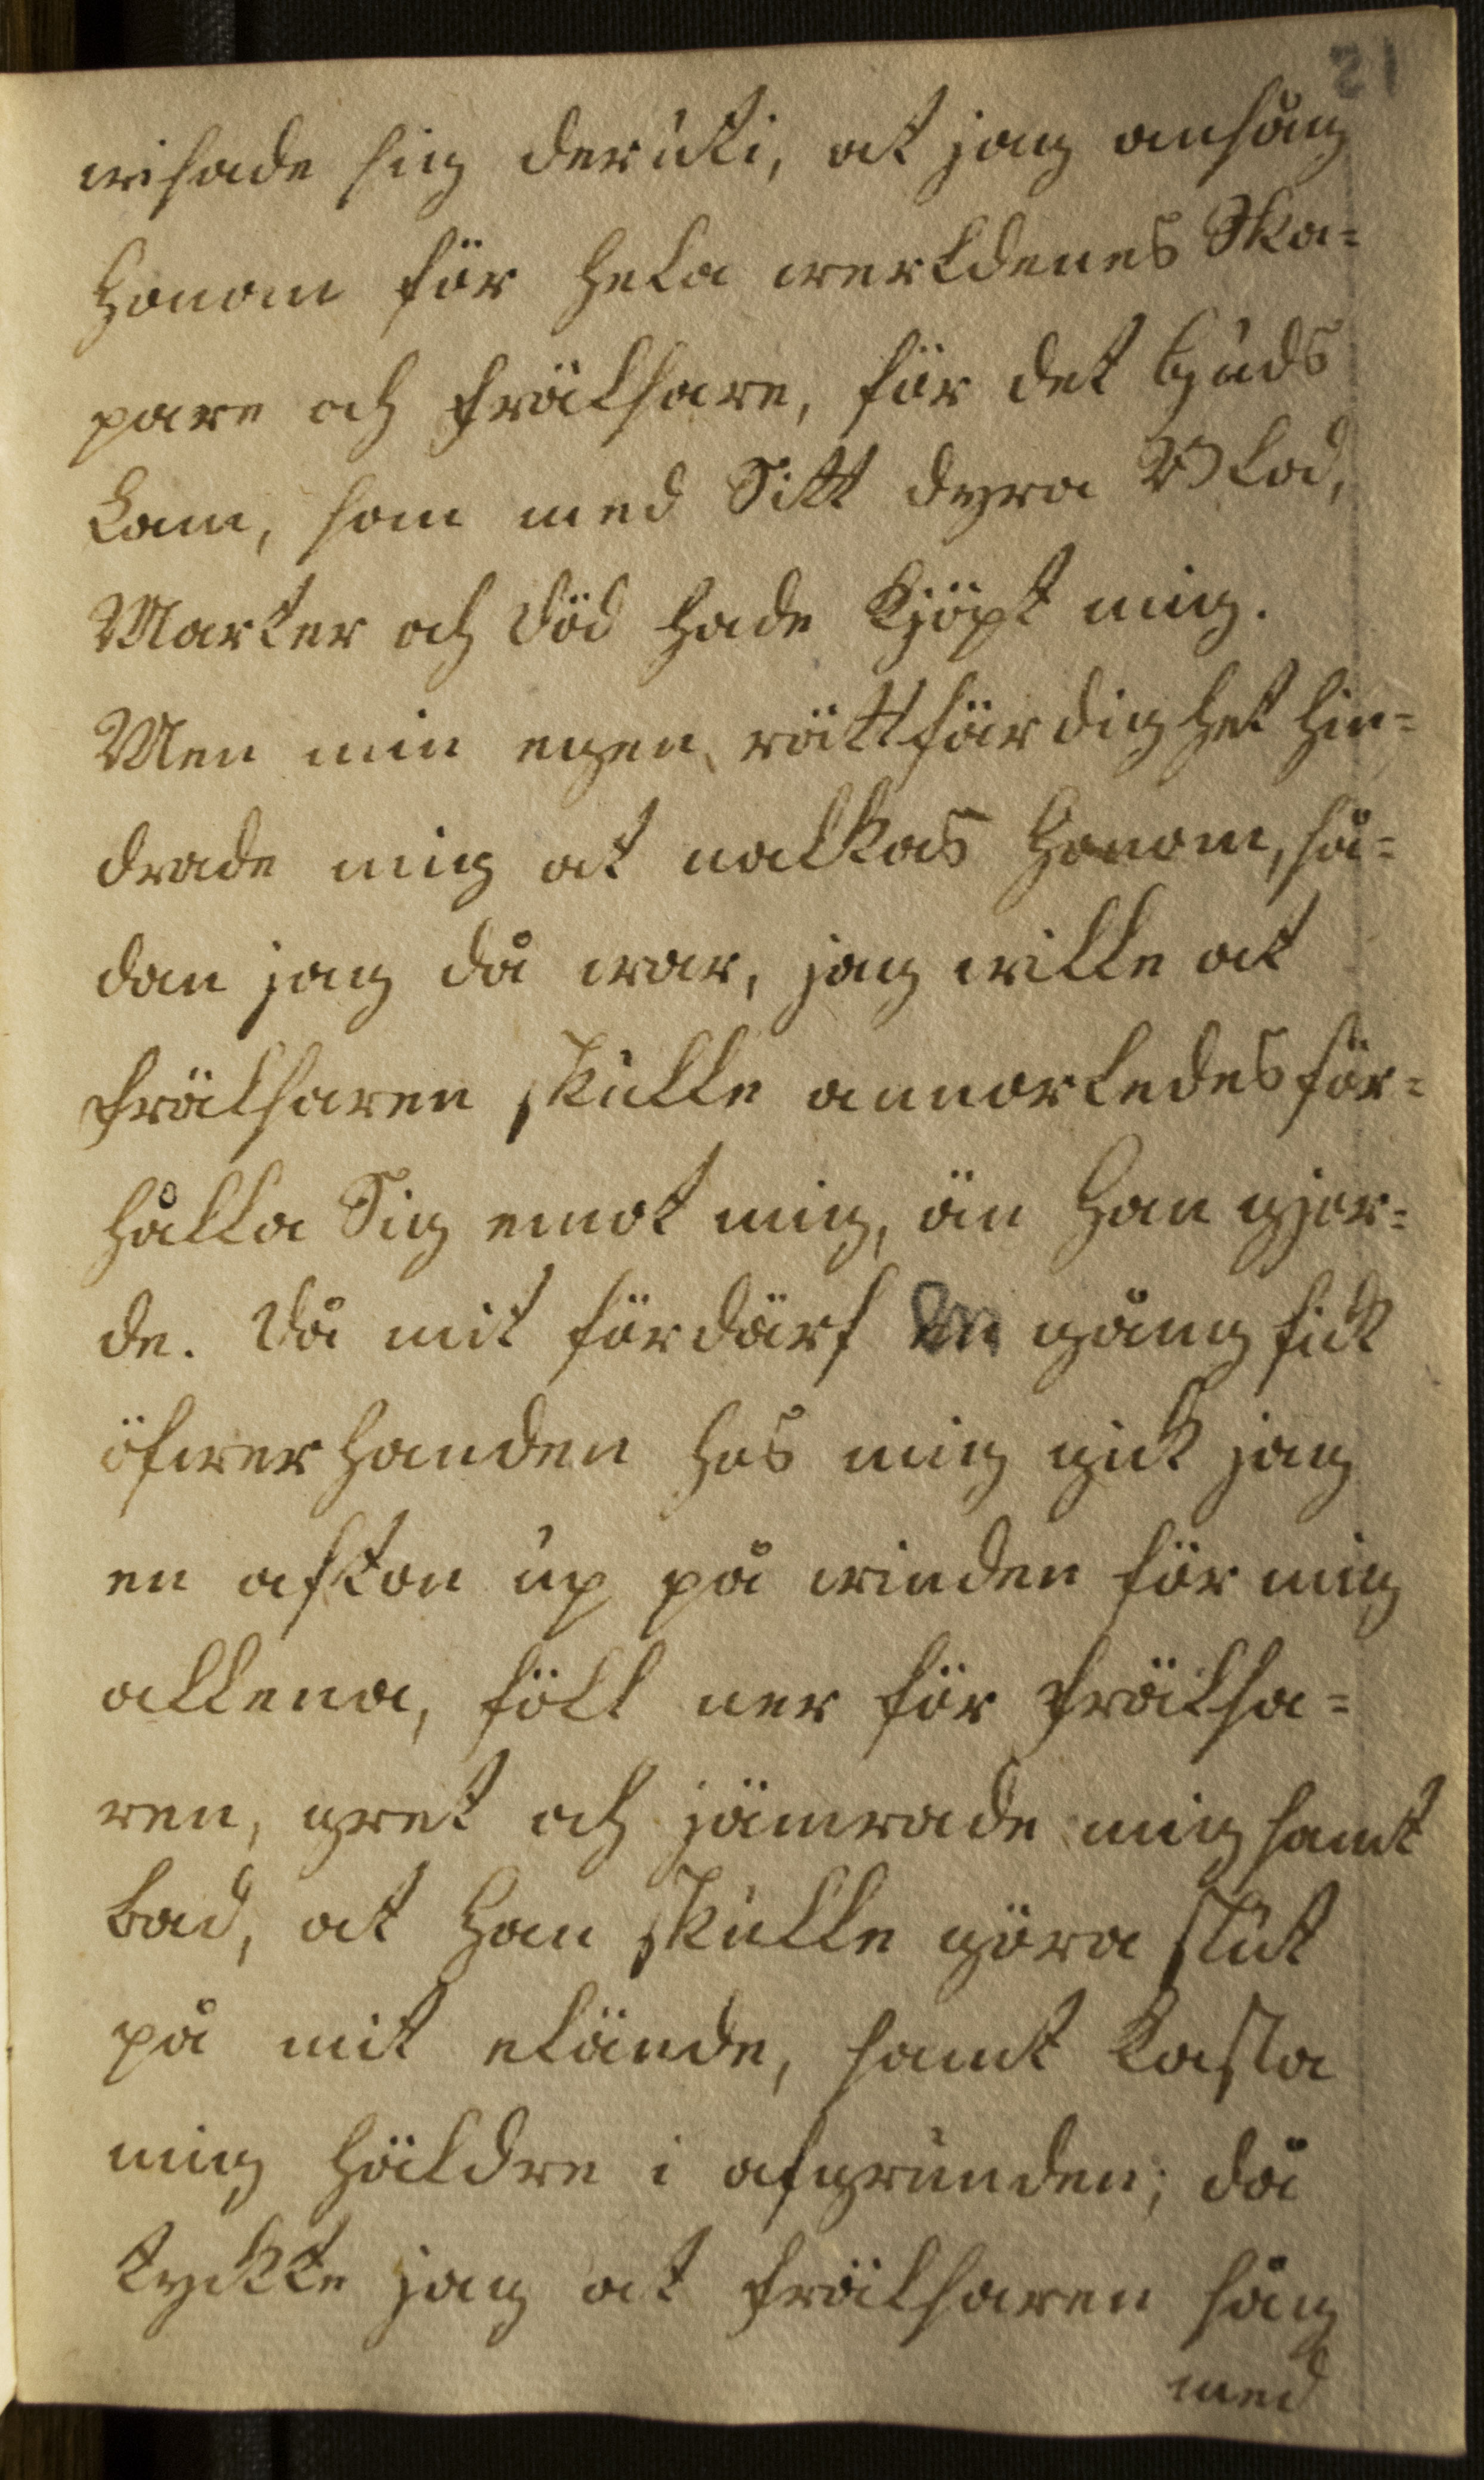 21
wisade sig deruti, at jag ansåg
Honom för hela werldenes Ska=
pare och Frälsare, för det Guds
Lam, som med Sitt dyra Blod,
Marter och död hade kjöpt mig.
Men min egen rättfärdighet hin=
drade mig at nalkas Honom, så=
dan jag då war, jag wille at
Frälsaren skulle annorledes för=
hålla Sig emot mig, än Han gjor=
de. Då mit fördärf en gång fick
öfwerhanden hos mig gick jag
en afton up på winden för mig
allena, föll ner för Frälsa=
ren, gret och jämrade mig samt
bad, at Han skulle göra slut
på mit elände, samt kasta
mig häldre i afgrunden; då
tyckte jag at Frälsaren såg
med